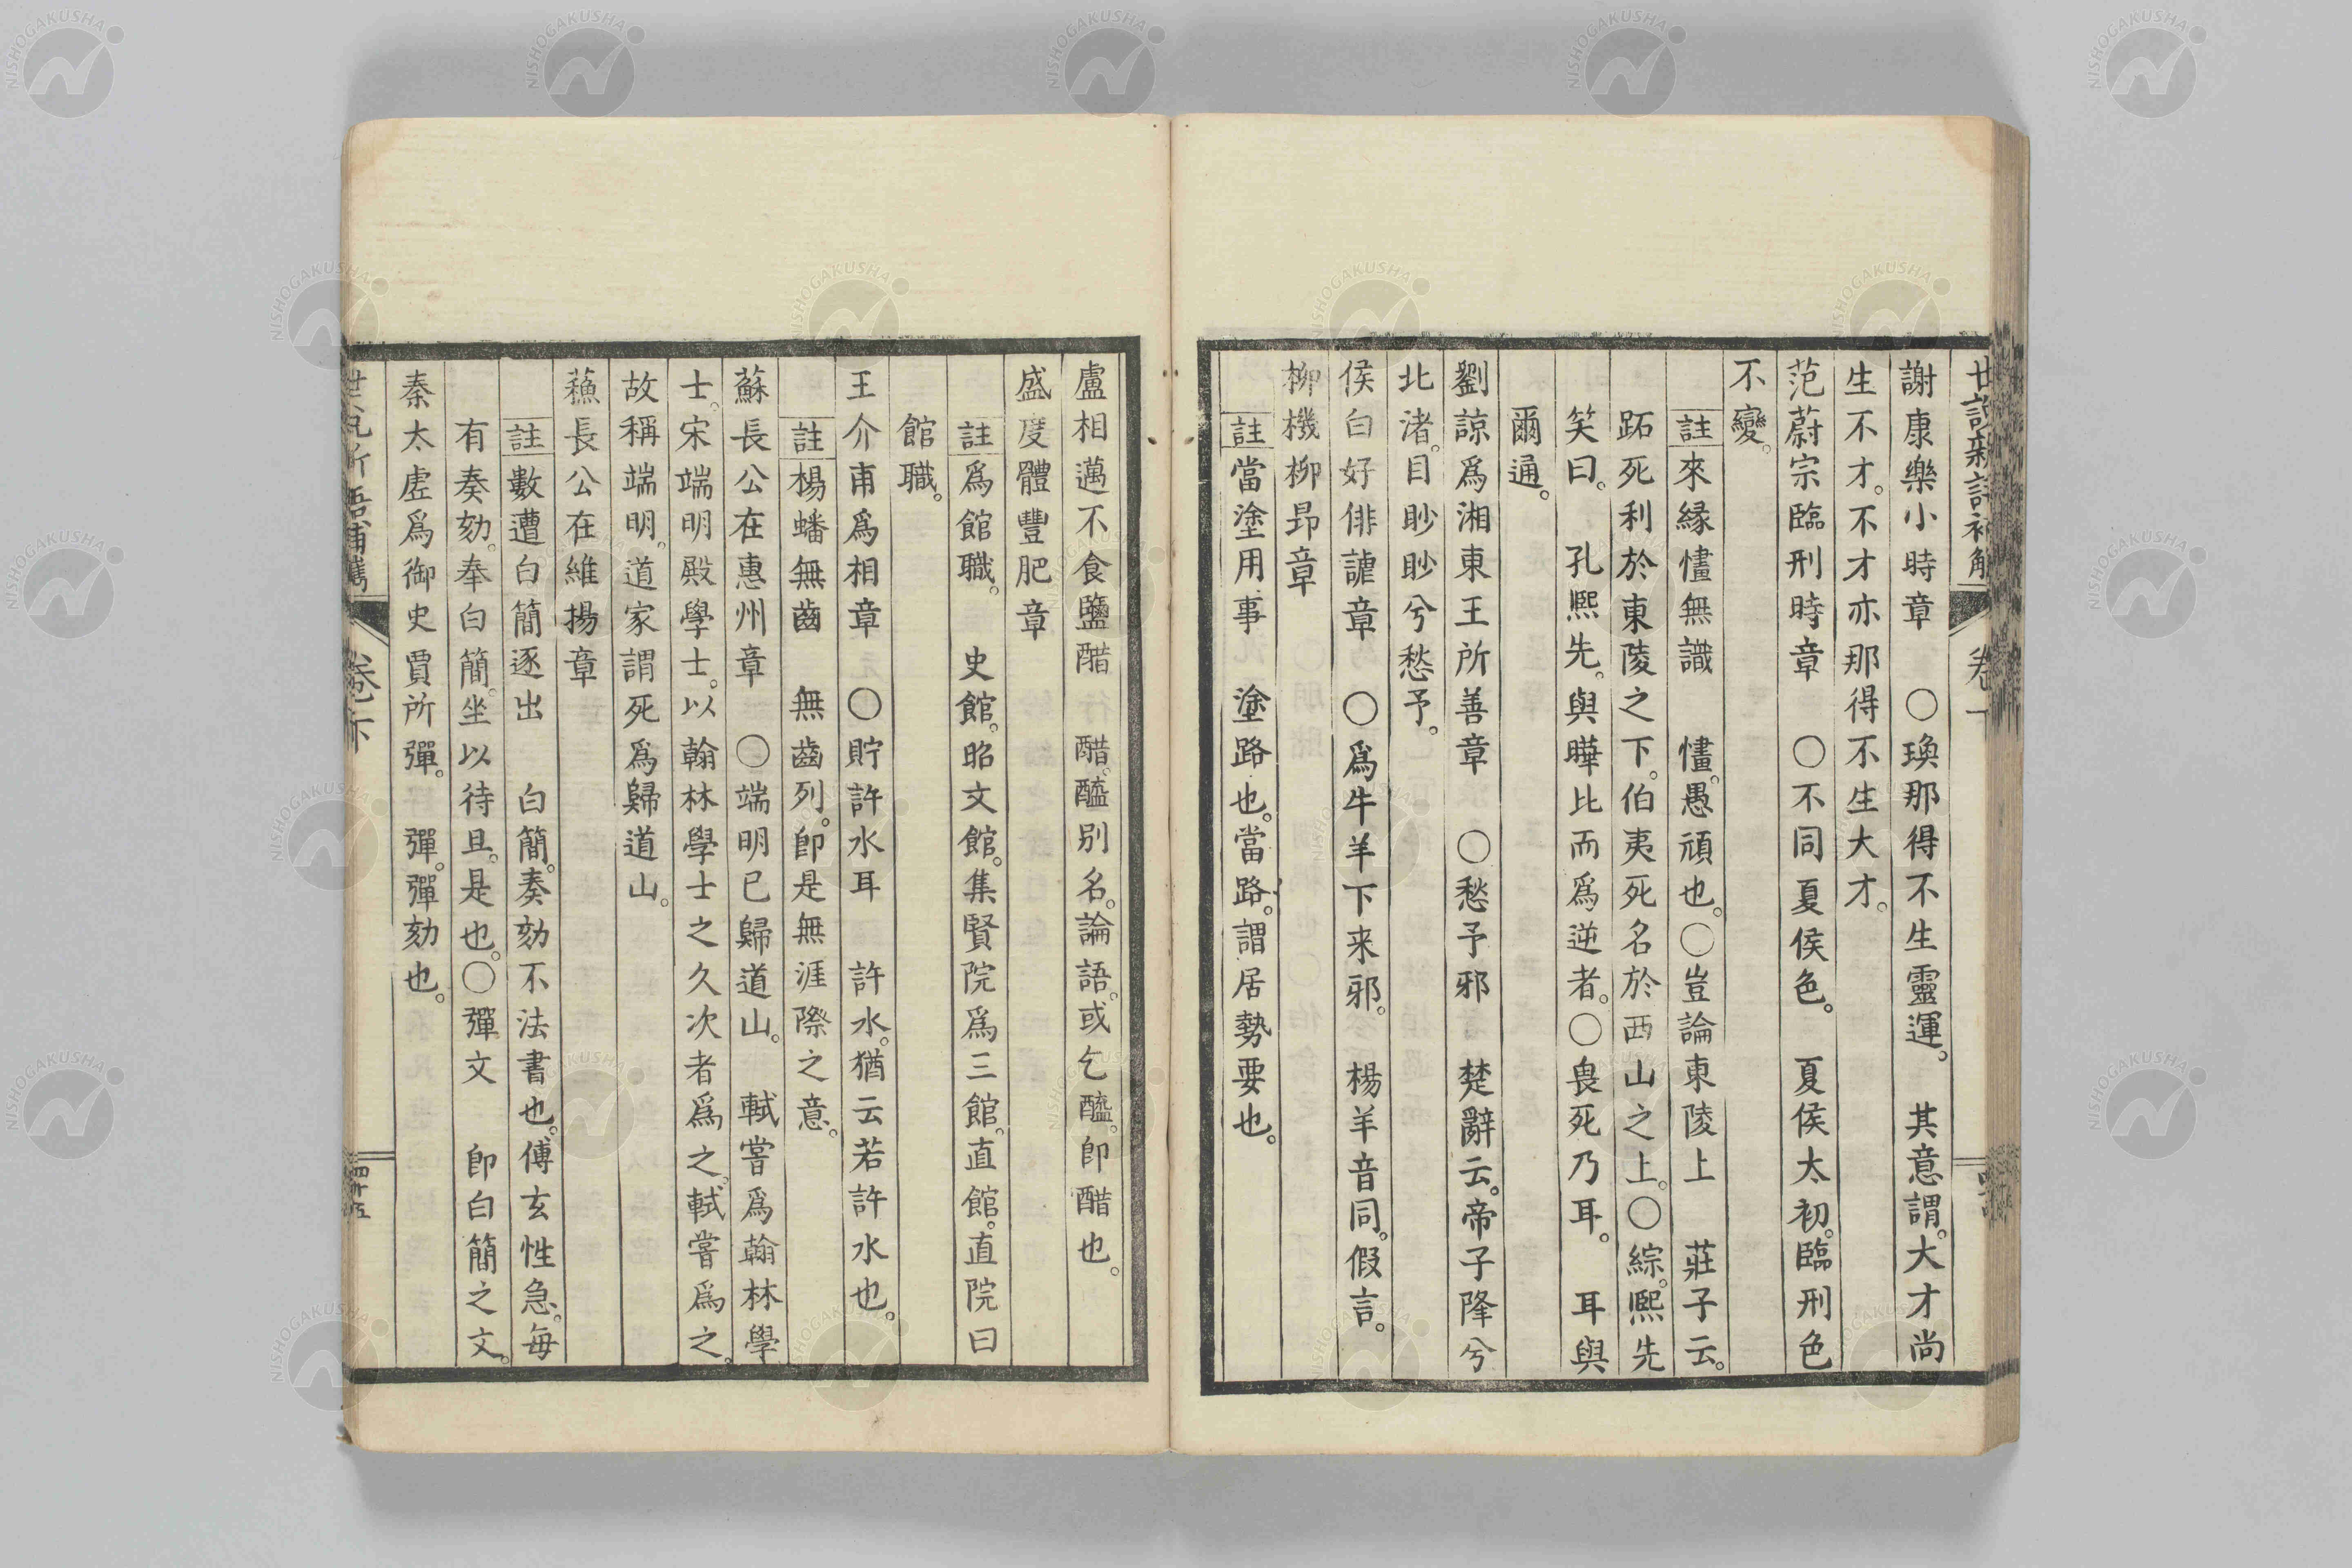 謝康樂小時章　〇瑍那得不生靈運。　其意謂。大才尚
生不才。不才亦那得不生大才。
范蔚宗臨刑時章　〇不同夏侯色。　夏侯太初。臨刑色
不變。
註來縁㦎無識　㦎。愚頑也。〇豈論東陵上　莊子云。
跖死利於東陵之下。伯夷死名於西山之上。〇綜。熙先
笑曰。　孔熙先。與曄比而爲逆者。〇畏死乃耳。　耳與
爾通。
劉諒爲湘東王所善章　〇愁予邪　楚辭云。帝子降兮
北渚。目眇眇兮愁予。
侯白好俳謔章　〇爲牛羊下来邪。　楊羊音同。假言。
柳機柳昻章
註當塗用事　塗路也。當路。謂居勢要也。
盧相邁不食鹽醋　醋。醯別名。論語。或乞醯。卽醋也。
盛度體豐肥章
註爲館職。　史館。昭文館。集賢院爲三館。直館。直院曰
館職。
王介甫爲相章　〇貯許水耳　許水。猶云若許水也。
註楊蟠無齒　無齒列。卽是無涯際之意。
蘇長公在惠州章　〇端明已歸道山。　軾嘗爲翰林學
士。宋端明殿學士。以翰林學士之久次者爲之。軾嘗爲之。
故稱端明。道家謂死爲歸道山。
蘓長公在維揚章
註數遭白簡逐出　白簡。奏劾不法書也。傅玄性急。每
有奏劾。奉白簡。坐以待旦。是也。〇彈文　卽白簡之文。
秦太虛爲御史賈所彈。　彈。彈劾也。